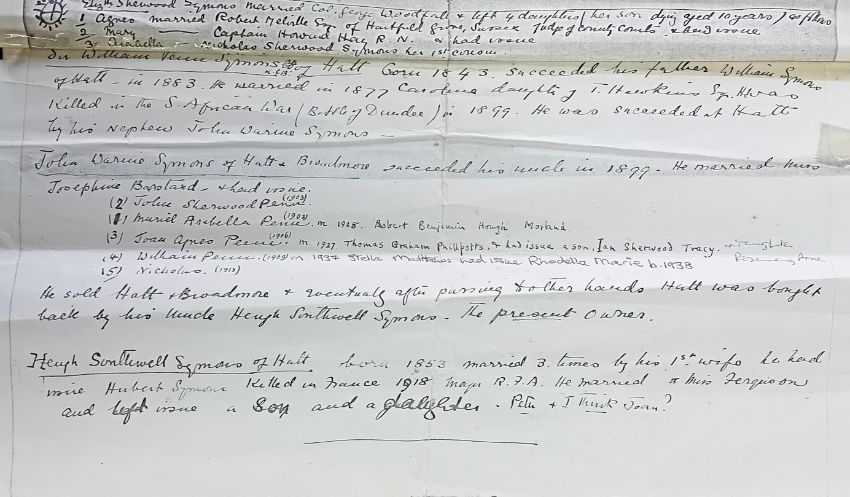 Sherwood Symons married Col. George Woodfall & left 4 daughters (her son dying aged 10 years) as follows
1 Agnes married Robert Melville Esq. of Hartfield Grove, Sussex Judge of County Courts & had issue
2 Mary — Captain Howard Hay R.N. & had issue
3 Isabella - Nicholas Sherwood Symons her 1st cousin.
Sir William Penn Symons K.C.B. of Hatt born 1843. Succeeded his father William Symons
of Hatt - in 1883. He married in 1877 Caroline daughter of T. Hawkins Esq. H was
killed in the S. African War (Battle of Dundee) in 1899. He was succeeded at Hatt
by his nephew John Warine Symons —
John Warine Symons of Hatt & Broadmore succeeded his uncle in 1899. He married Miss
Josephine Bastard - & had issue.
(2) John Sherwood Penn. (1903)
(1) Muriel Arabella Penn. (1902) m. 1928. Robert Benjamin Hough Morland
(3) Joan Agnes Penn. (1906) m 1927 Thomas Graham Phillpotts. & had issue a son. Ian Sherwood Tracy. + daughter
Rosemary Anne
(4) William Penn. (1909) m. 1937 Stella Matthews had issue Rhodella Marie b. 1938
(5) Nicholas. (1913)
He sold Hatt & Broadmore & eventually after passing to other hands Hatt was bought
back by his Uncle Heugh Southwell Symons - The present owner.
Heugh Southwell Symons of Hatt. born 1853 married 3 times by his 1st wife he had
issue Hubert Symons killed in France 1918 Major R.F.A. He married Miss Ferguson
and left issue a son and a daughter. Peter & I think Joan?